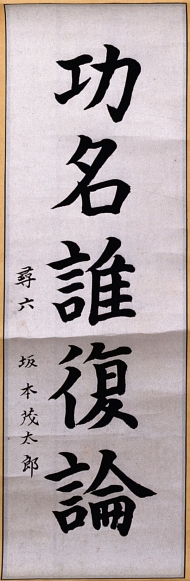 功名誰復論
尋六 坂本茂太郎